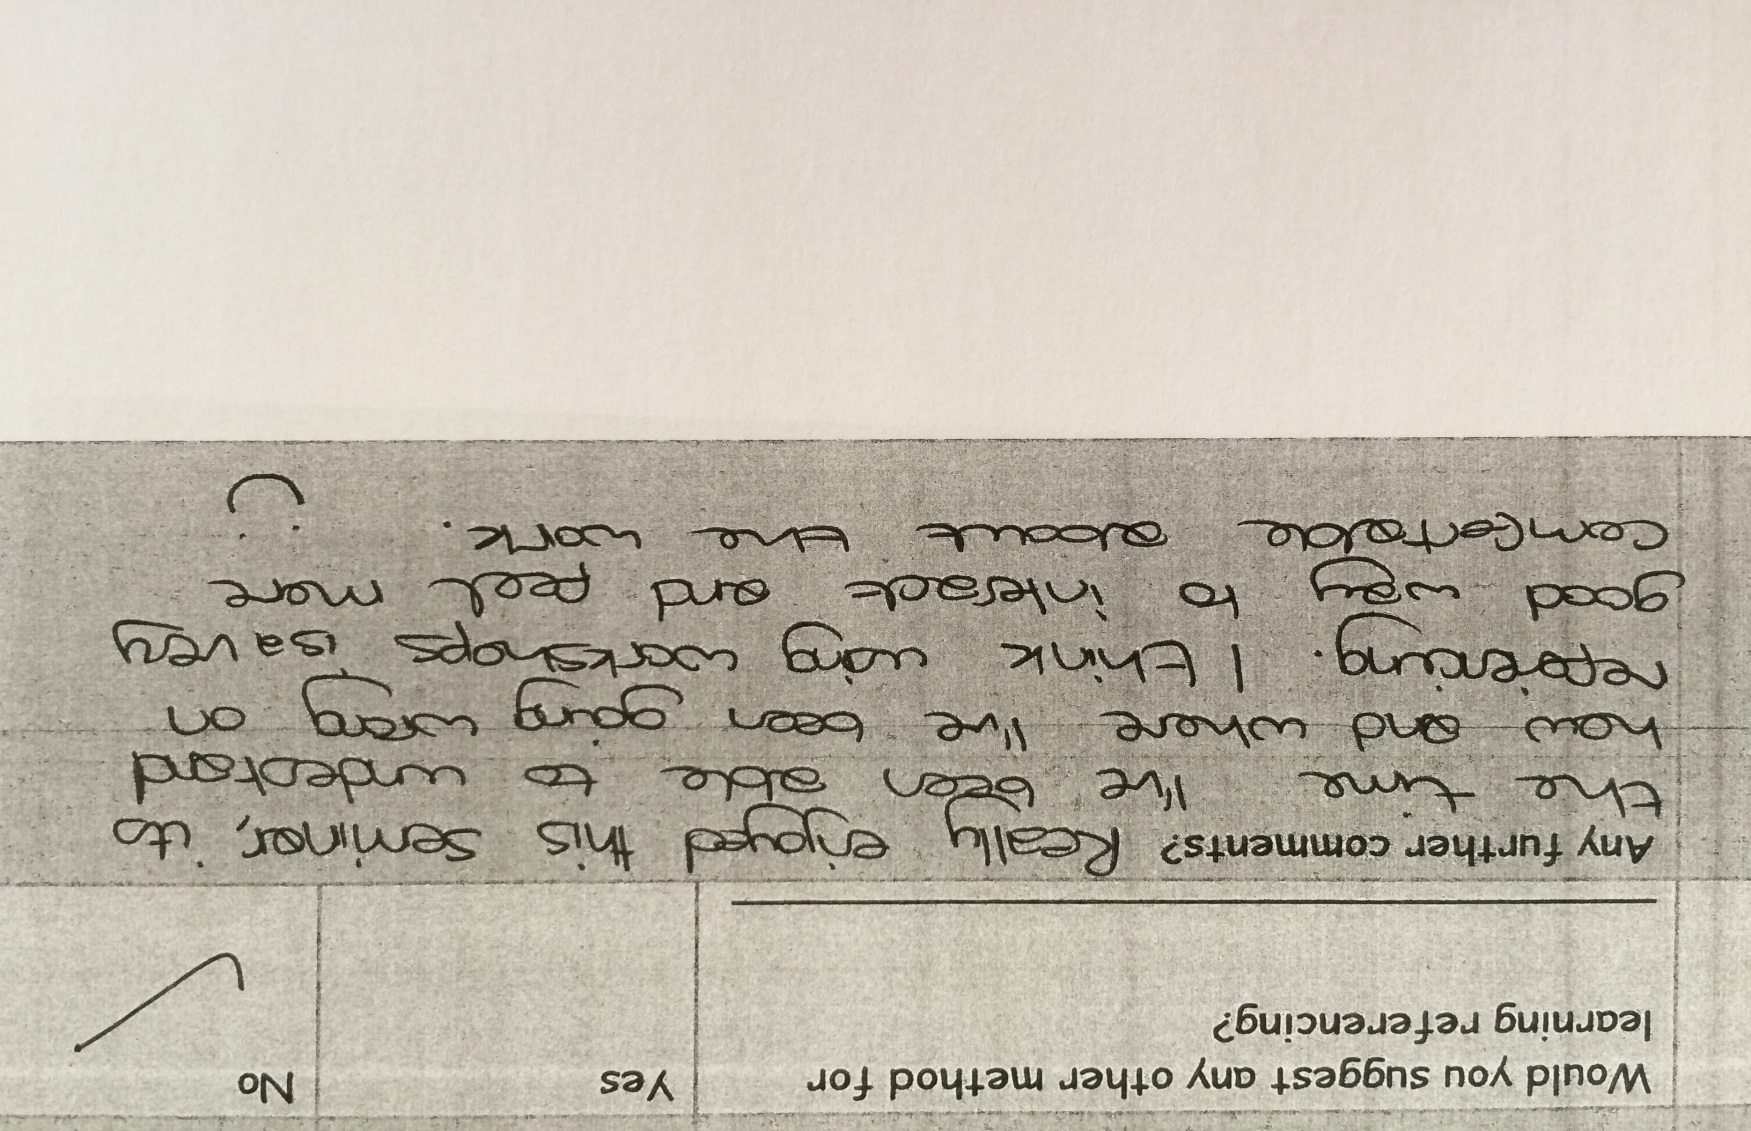 Would you suggest any other method for
learning referencing?
Yes
No
Any further comments? Really enjoyed this seminar, its
the time I've been able to undestand
how and where I've been going wrong on
referencing. I think using workshops is a very
good way to interact and feel more
comfortable about the work.